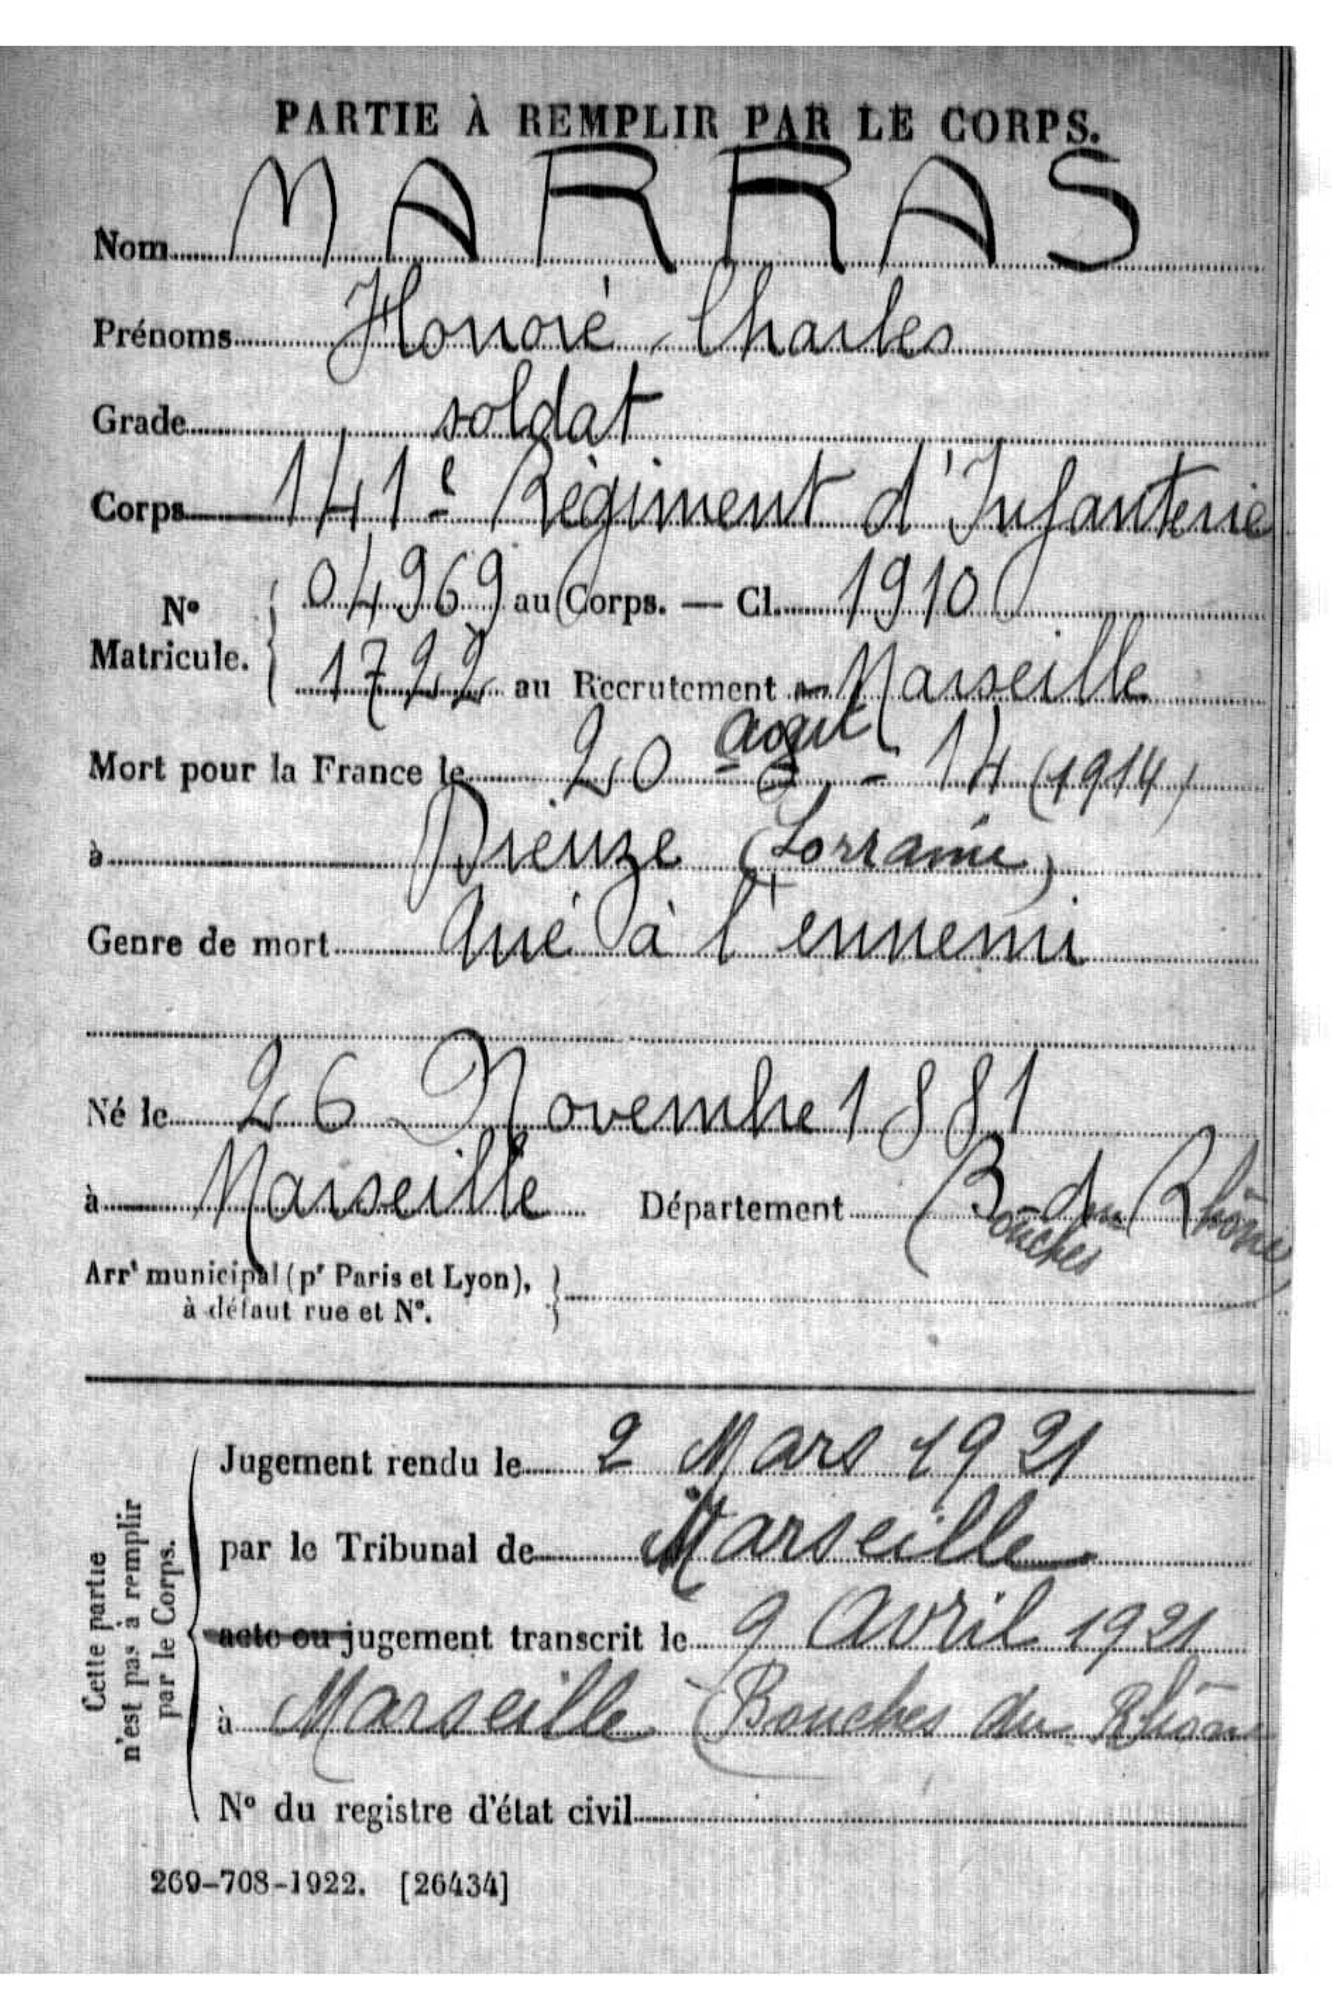 PARTIE À REMPLIR PAR LE CORPS.
Nom MARRAS
Prénoms Honoré Charles
Grade soldat
Corps 141e Régiment d'Infanterie
No Matricule. { 04969 au Corps. — Cl. 1910
1722 au Recrutement Marseille
Mort pour la France le 20 août - 14 (1914)
à Dieuze (Lorraine)
Genre de mort tué à l'ennemi
Né le 26 Novembre 1881
à Marseille Département B- du Rhône
Bouches
Arrt municipal (pr Paris et Lyon), }
à défaut rue et No.
Cette partie
n'est pas à remplir
par le Corps.
Jugement rendu le 2 Mars 1921
par le Tribunal de Marseille
acte ou jugement transcrit le 9 Avril 1921
à Marseille (Bouches du Rhône
No du registre d'état civil
269-708-1922. [26434]